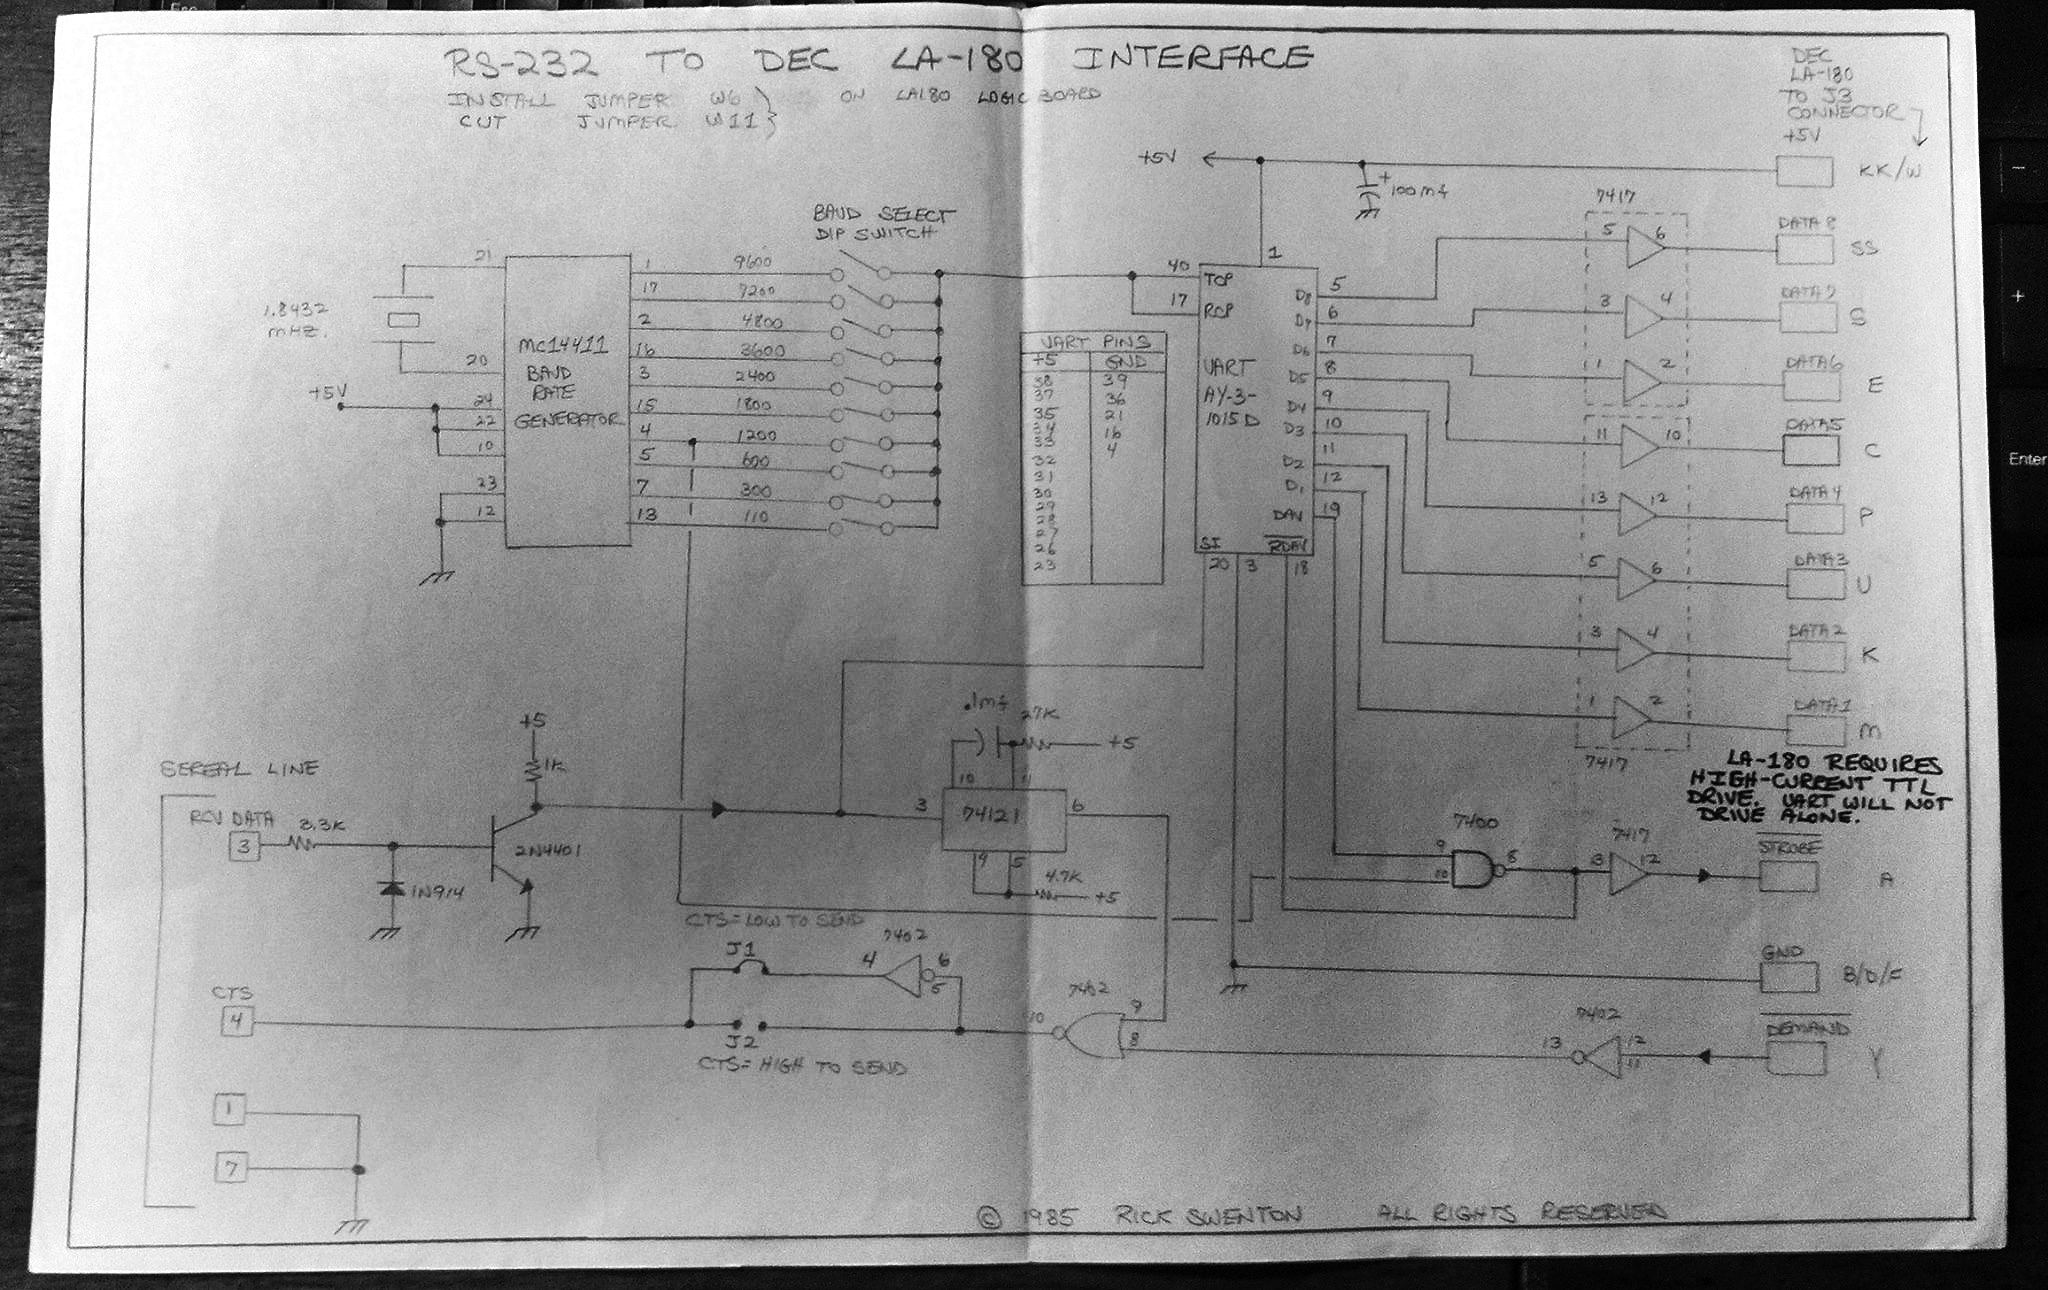 RS-232 TO DEC LA-180 INTERFACE
INSTALL JUMPER W6 } ON LA180 LOGIC BOARD
CUT JUMPER W11 }
DEC
LA-180
TO J3
CONNECTOR
+5V
KK/W
+5V
+
100mf
7417
BAUD SELECT
DIP SWITCH
1.8432
mHZ.
21
20
+5V
24
22
10
23
12
MC14411
BAUD
RATE
GENERATOR
1 9600
17 7200
2 4800
16 3600
3 2400
15 1800
4 1200
5 600
7 300
13 110
UART PINS
+5 GND
38 39
37 36
35 21
34 16
33 4
32
31
30
29
28
27
26
23
1
40 TCP
17 RCP
UART
AY-3-
1015D
D8 5
D7 6
D6 7
D5 8
D4 9
D3 10
D2 11
D1 12
DAV 19
SI RDAV
20 3 18
5 6 DATA 8 SS
3 4 DATA7 S
1 2 DATA6 E
11 10 DATA5 C
13 12 DATA4 P
5 6 DATA3 U
3 4 DATA2 K
1 2 DATA1 M
7417
LA-180 REQUIRES
HIGH-CURRENT TTL
DRIVE. UART WILL NOT
DRIVE ALONE.
SEREAL LINE
RCV DATA
3
3.3K
1N914
+5
1K
2N4401
.1mf
27K
+5
10 11
3 74121 6
4 5
4.7K
+5
7400
9
10
8
7417
13 12
STROBE
A
CTS=LOW TO SEND
J1
7402
4
6
5
CTS
4
J2
CTS=HIGH TO SEND
7402
10
9
8
GND
B/D/F
7402
13
12
11
DEMAND
Y
1
7
© 1985 RICK SWENTON ALL RIGHTS RESERVED
Enter